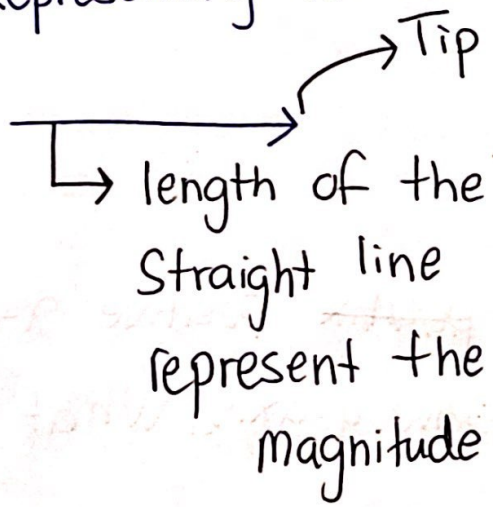 Tip
length of the
Straight line
represent the
magnitude